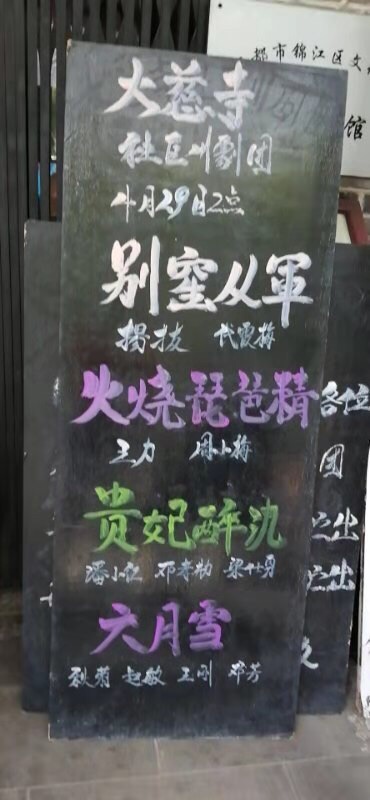 大慈寺
社区川劇团
4月29日2点
别窑从軍
杨拔 代霞梅
火烧琵琶精
王力 周小梅
贵妃醉氿
潘小红 邓春勃 梁仕勇
六月雪
秋菊 赵敏 王刚 邓芳
都市锦江区文
馆
各位
团
之出